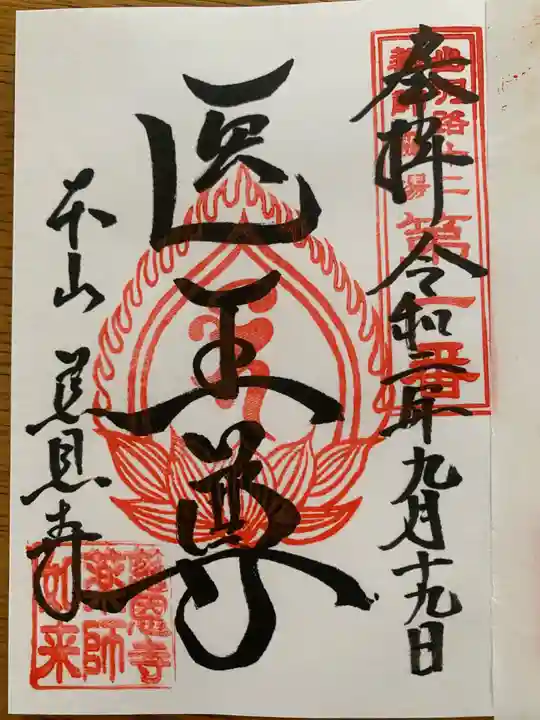 奉拝 令和二年九月十九日
第一番
醫王尊
本山 慈恩寺
慈恩寺
薬師
如来